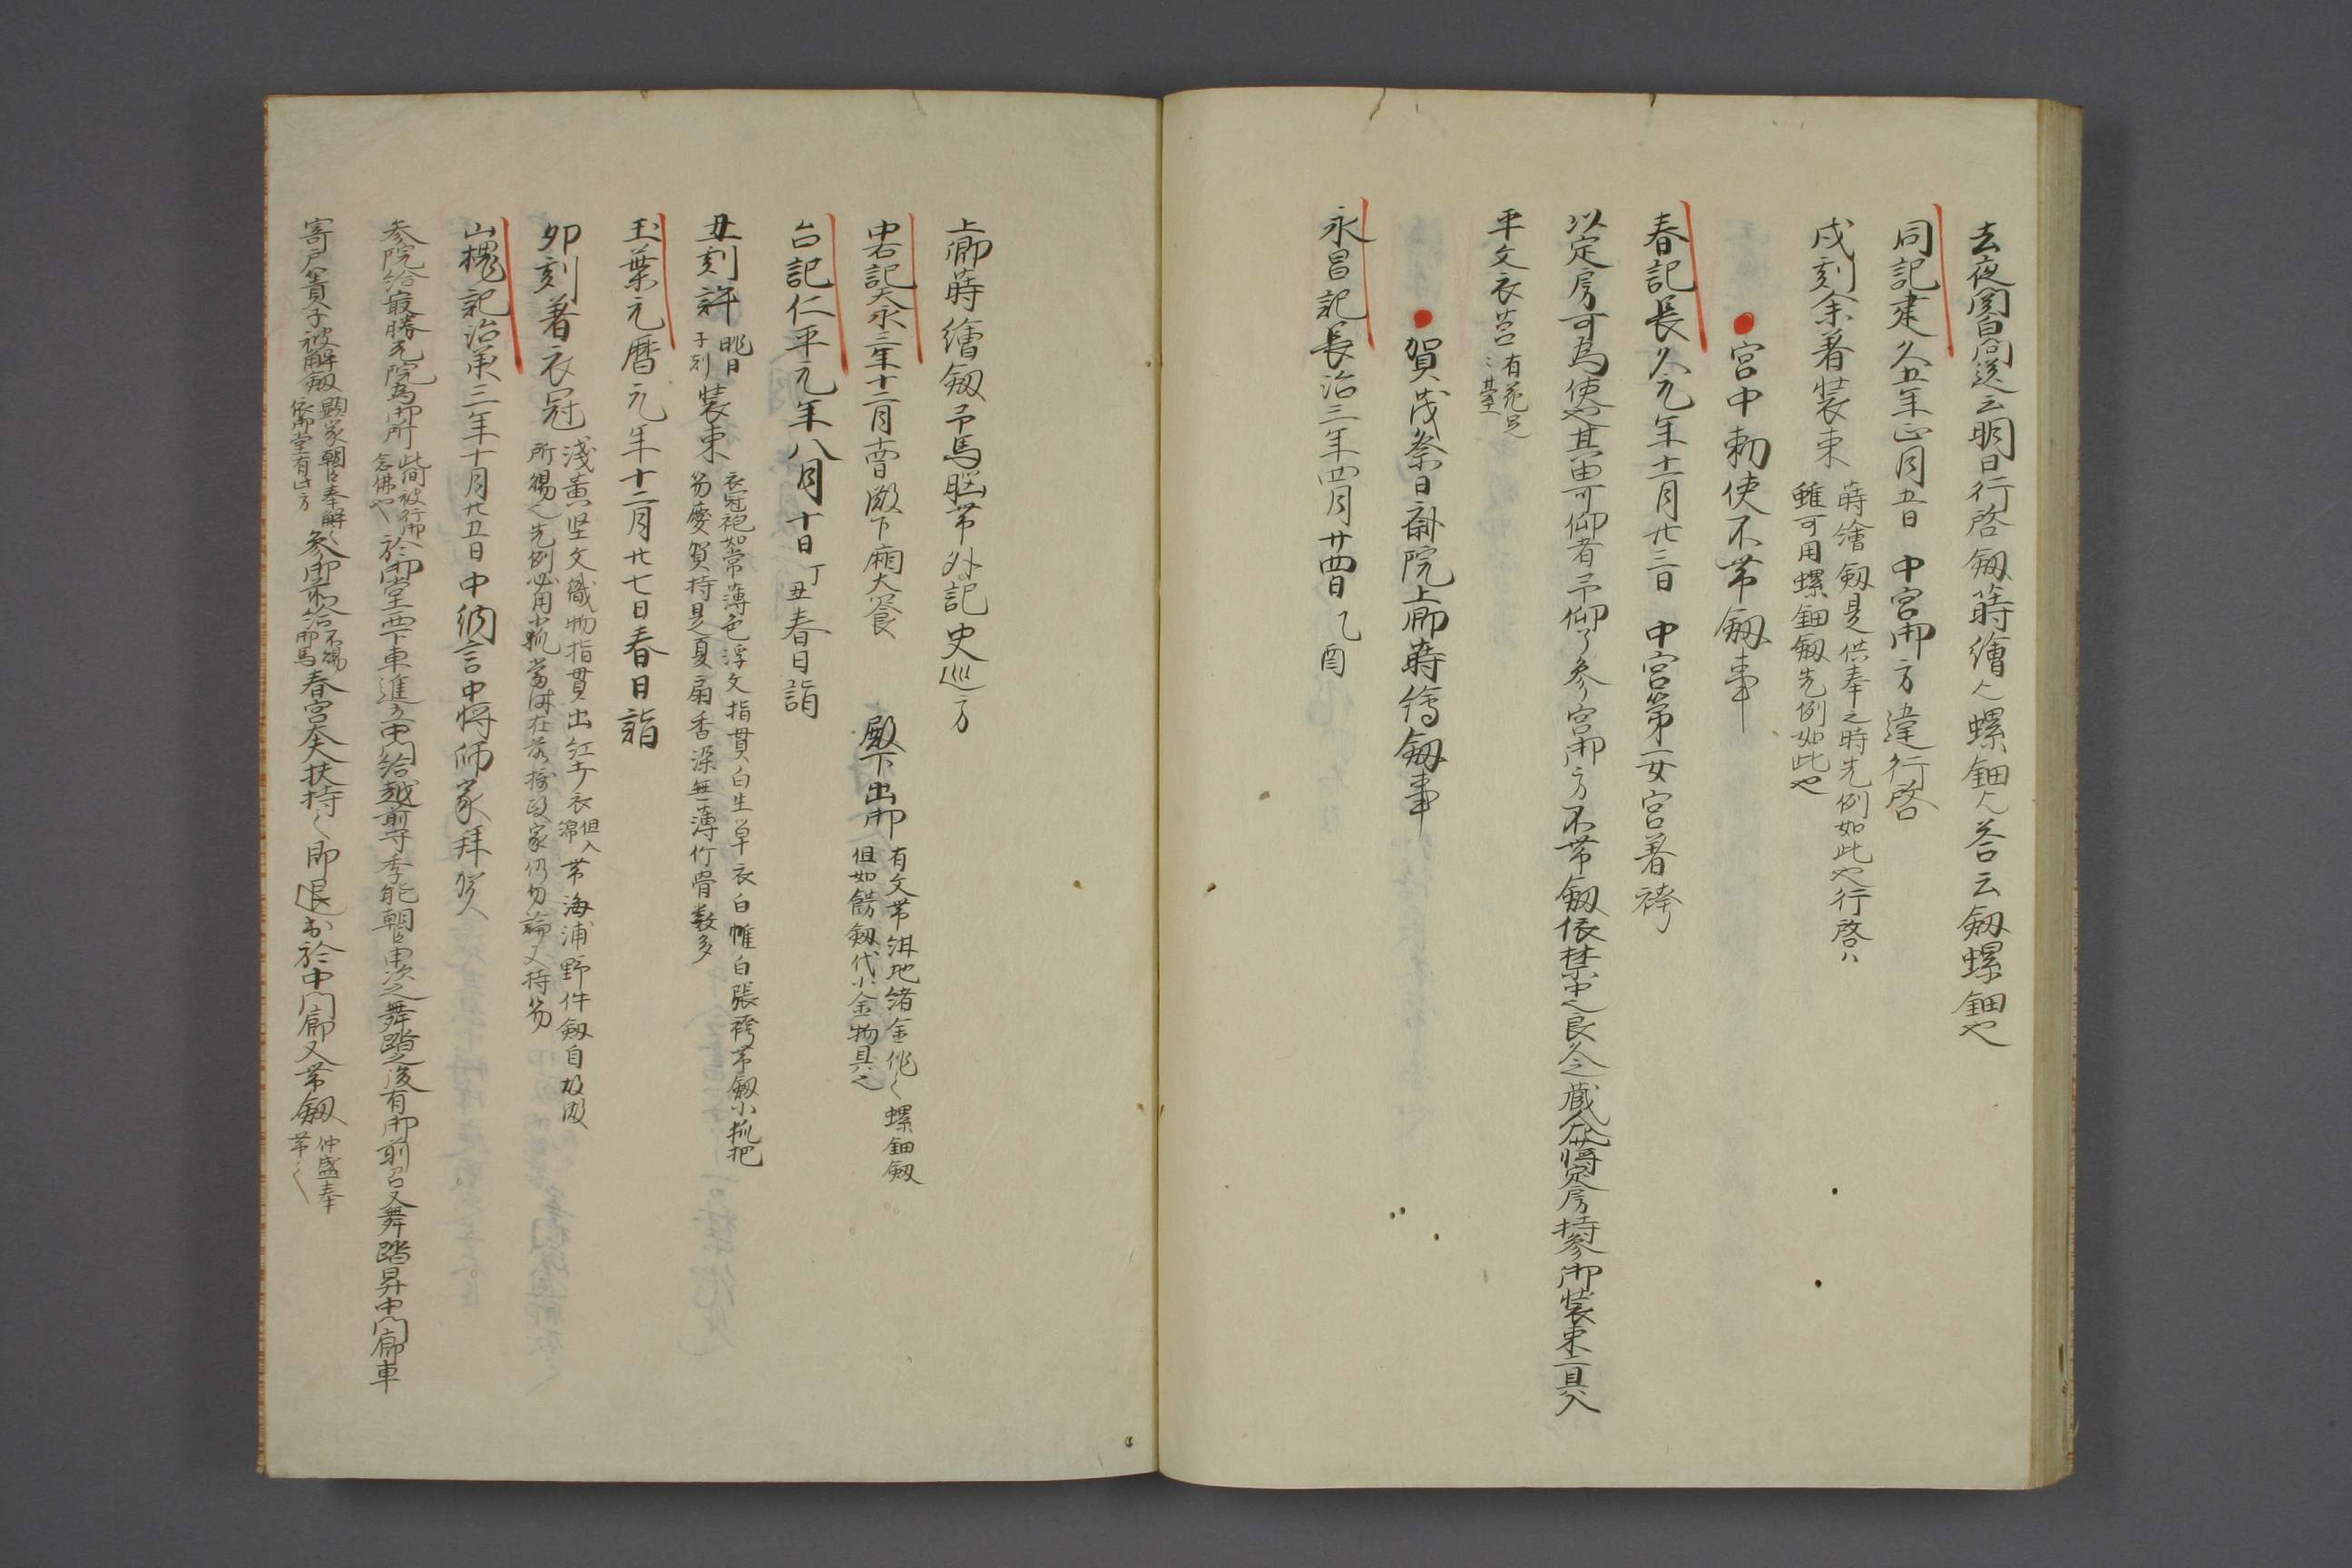 去夜関白問送云明日行啓釼蒔繪欤螺鈿欤答云釼螺鈿也
同記建久五年正月五日 中宮御方違行啓
戌刻余著装束 蒔繪釼是供奉之時先例如此也行啓ハ
雖可用螺鈿釼先例如此也
宮中勅使不帯釼事
春記長久元年十一月廿三日 中宮第一女宮著袴
以定房可為使也其由可仰者予仰了参宮御方不帯釼依禁中也良久之蔵人少将定房持参御装束二具入
平文衣筥 有花足
賀茂祭日斎院上卿蒔繪釼事
永昌記長治三年四月廿四日 乙酉
上卿蒔繪釼予馬脳帯外記史巡方
中右記天永三年十二月十四日殿下廂大饗 殿下出御 有文帯紺地緒金作螺鈿釼
但如餝釼代小金物具之
台記仁平元年八月十日 丁丑 春日詣
丑刻許 昨日
子刻 装束 衣冠袍如常薄色浮文指貫白生単衣白帷白張袴帯釼小狐把
笏慶賀持是夏扇香染無薄竹骨数多
玉葉元暦元年十二月廿七日春日詣
卯刻著衣冠 浅黄堅文織物指貫出紅打衣 但入
綿 帯海浦野件釼自故殿
所賜也先例必用小狐当時在前摂政家仍勿論又持笏
山槐記治承三年十月廿五日中納言中将師家拜賀
参院給最勝光院為御所 此間被行御
念佛也 於御堂西下車進立中門給越前守季能朝臣申次之舞踏之後有御前召又舞踏昇中門廊車
寄戸簀子被解釼 顕家朝臣奉解之
依御堂有此方 参御前給 不賜
御馬 春宮大夫扶持之即退出於中門廊又帯釼 仲盛奉
帯之